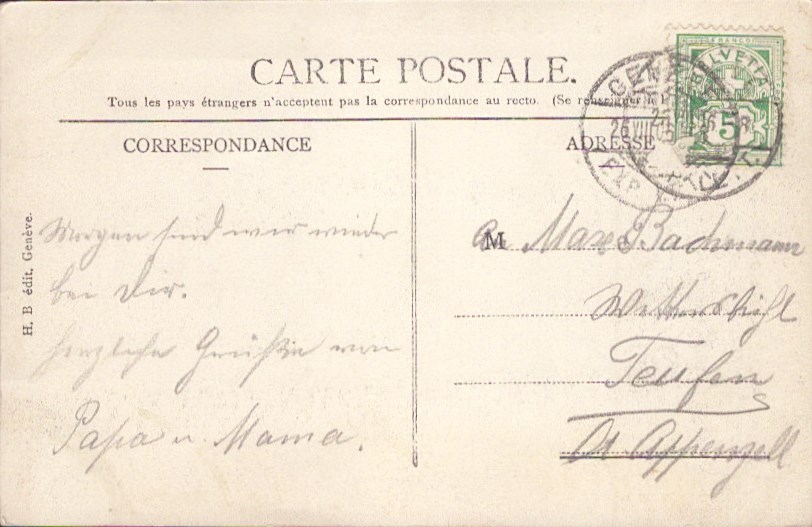 CARTE POSTALE.
Tous les pays étrangers n'acceptent pas la correspondance au recto. (Se renseigner
CORRESPONDANCE
ADRESSE
FRANCO
HELVETIA
5
GEN
26 VIII
EXP. LET
H. B édit, Genève.
Morgen sind wir wieder
bei Dir.
herzliche Grüße von
Papa u. Mama.
M
An Max Bachmann
Teufen
Ct Appenzell